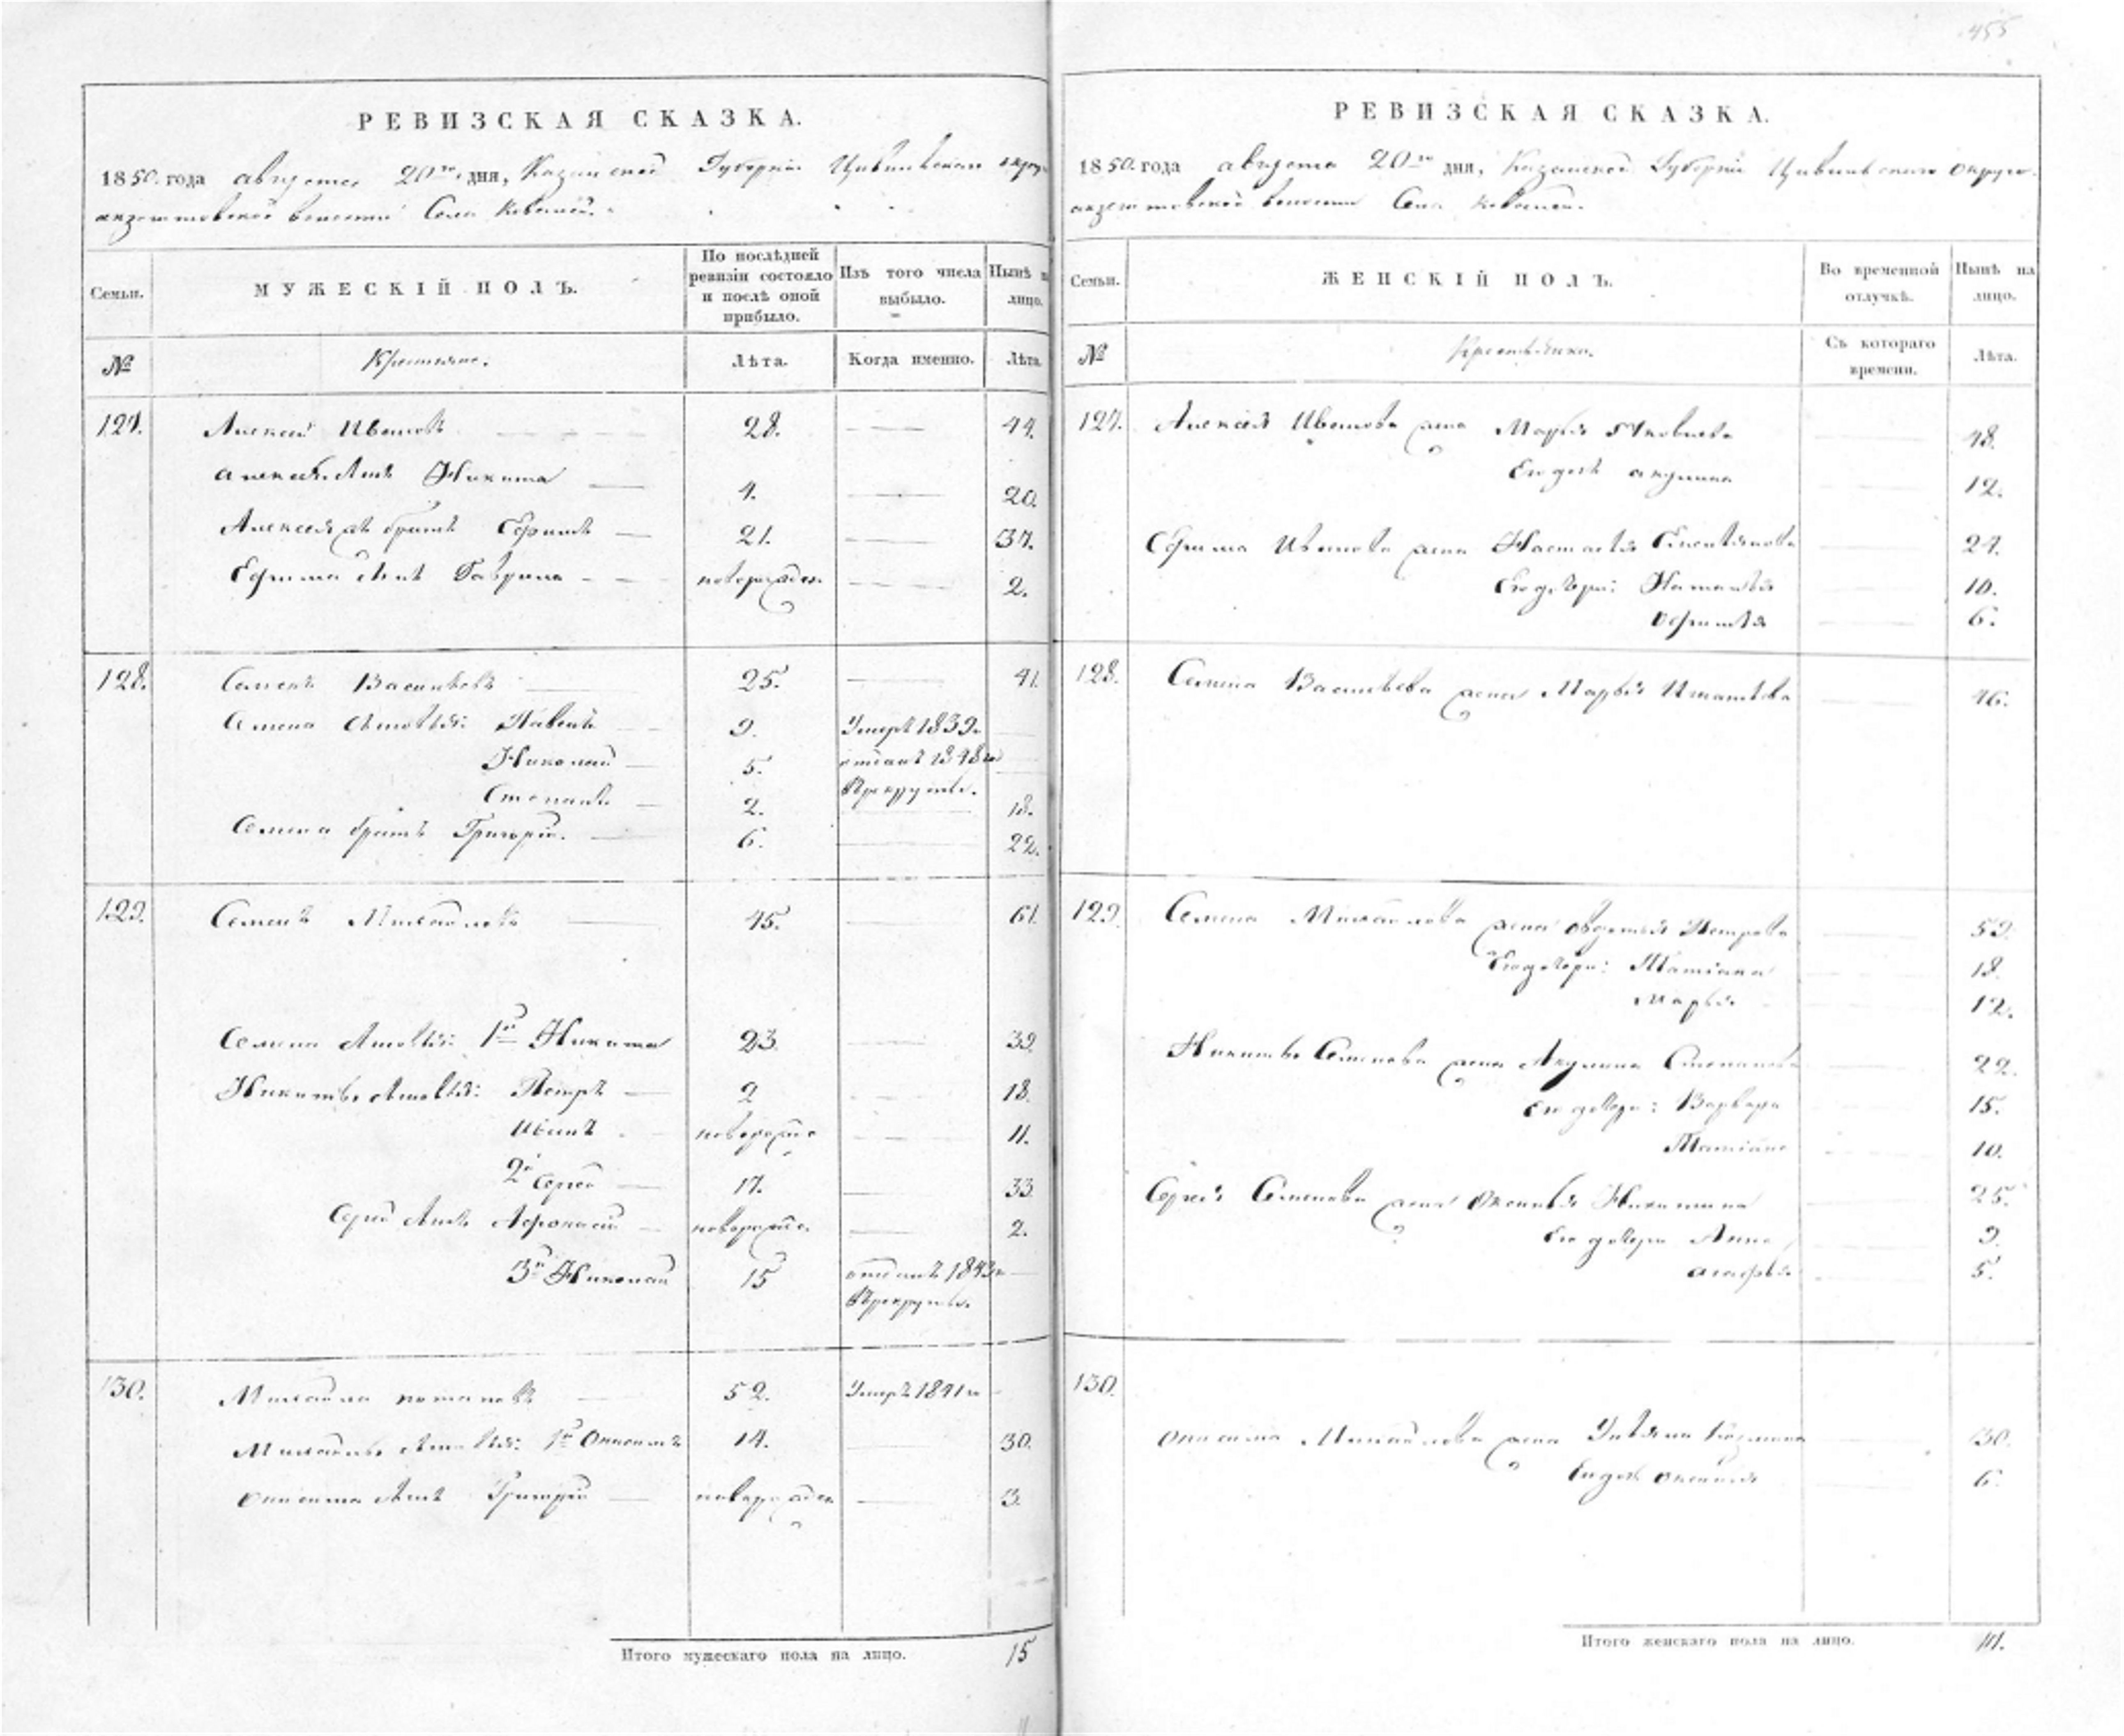 455
РЕВИЗСКАЯ СКАЗКА.
1850. года августа 20го дня, Казанской Губерніи Цивильскаго округа
волости Села
Семьи. МУЖЕСКІЙ ПОЛЪ. По послѣдней ревизіи состояло и послѣ оной прибыло. Изъ того числа выбыло. Нынѣ на лицо.
№ Крестьяне. Лѣта. Когда именно. Лѣта.
127. Алексей Ивановъ 28. 44.
Алексея сынъ Никита 4. 20.
Алексея же братъ Ефимъ 21. 37.
Ефима сынъ Гаврила новорожден 2.
128. Семенъ Васильевъ 25. 41.
Семена сыновья: Павелъ 9. Умеръ 1839г
Николай 5. отданъ 1848го
Врекруты.
Степанъ 2. 18.
Семена братъ Григорій. 6. 22.
129. Семенъ Михайловъ 45. 61.
Семена сыновья: 1й Никита 23. 39.
Никиты сыновья: Петръ 2 18.
Иванъ новорожде 11.
2й Сергей 17. 33.
Сергея сынъ Афонасей новорожде. 2.
3й Николай 15 отданъ 1843г
Врекруты.
130. Михайла Потаповъ 52. Умеръ 1841г
Михайлы сыновья: 1й Онисимъ 14. 30.
Онисима сынъ Григорей новорожден 3.
Итого мужескаго пола на лицо. 15
РЕВИЗСКАЯ СКАЗКА.
1850. года августа 20го дня, Казанской Губерніи Цивильскаго округа
волости Села
Семьи. ЖЕНСКІЙ ПОЛЪ. Во временной отлучкѣ. Нынѣ на лицо.
№ Съ котораго времени. Лѣта.
127. Алексея Иванова жена Марья Яковлева 48.
Его дочь Акулина 12.
Ефима Иванова жена Настасья 27.
Его дочери: Наталья 10.
6.
128. Семена Васильева жена Марья Игнатьева 46.
129. Семена Михайлова жена Овдотья Петрова 59.
Его дочери: Татіана 18.
Марья 12.
Никиты Семенова жена Акулина Степанова 22.
Его дочери: Варвара 15.
Татіана 10.
Сергея Семенова жена Оксинья Никитина 25.
Его дочери Анна 9.
Агафья 5.
130.
Онисима Михайлова жена Ульяна Козмина 30.
Его дочь Оксинья 6.
Итого женскаго пола на лицо. 17.